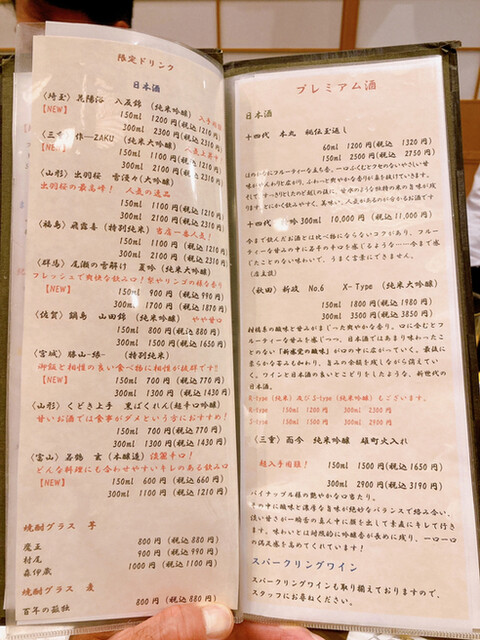 限定ドリンク
日本酒
〈埼玉〉花陽浴 八反錦 (純米吟醸) 入手困難
【NEW】 150ml 1200円(税込
300ml 2300円(税込
〈三重〉作―ZAKU (純米大吟醸)
【NEW】 150ml 1100円(税込 1210円)
300ml 2100円(税込 2310円)
〈山形〉出羽桜 雪漫々(大吟醸)
出羽桜の最高峰! 人気の逸品
150ml 1100円(税込 1210円)
300ml 2100円(税込 2310円)
〈福島〉飛露喜 (特別純米) 当店一番人気!
150ml 1100円(税込 1210円)
300ml 2100円(税込 2310円)
〈群馬〉尾瀬の雪解け 夏吟 (純米大吟醸)
フレッシュで爽快な飲み口!梨やリンゴの様な香り
【NEW】 150ml 900円(税込 990円)
300ml 1700円(税込 1870円)
〈佐賀〉鍋島 山田錦 (純米吟醸) やや甘口
150ml 800円(税込 880円)
300ml 1500円(税込 1650円)
〈宮城〉勝山-縁- (特別純米)
御飯と相性の良い食べ物に相性が抜群です!
【NEW】 150ml 700円(税込 770円)
300ml 1300円(税込 1430円)
〈山形〉くどき上手 黒ばくれん(超辛口吟醸)
甘いお酒では食事がダメという方におすすめ!
150ml 700円(税込 770円)
300ml 1300円(税込 1430円)
〈富山〉若鶴 玄 (本醸造) 淡麗辛口!
どんな料理にも合わせやすいキレのある飲み口
【NEW】 150ml 600円(税込 660円)
300ml 1100円(税込 1210円)
焼酎グラス 芋
魔王 800円(税込 880円)
村尾 900円(税込 990円)
森伊蔵 1000円(税込 1100円)
焼酎グラス 麦
百年の孤独 800円(税込 880円)
プレミアム酒
日本酒
十四代 本丸 秘伝玉返し
60ml 1200円(税込 1320円)
150ml 2500円(税込 2750円)
十四代 吟 300ml 10,000円(税込 11,000円)
今まで飲んだお酒とは比べ物にならないコクがあり、フルー
ティーな甘みの中に若干の辛口を感じるような……今まで感
じたことのない味わいで、うまく言葉にできません。
(店主談)
〈秋田〉新政 No.6 X-Type (純米大吟醸)
150ml 1800円(税込 1980円)
300ml 3500円(税込 3850円)
柑橘系の酸味と甘みがまじった爽やかな香り。口に含むとフ
ルーティーな甘味を感じつつ、日本酒ではあまり味わったこ
とのない「新感覚の酸味」が口の中に広がっていく。最後に
柔らかな苦みもわり、旨みの余韻を残しながら備えてい
く。ワインと日本酒の良いとこどりをしたような、新世代の
日本酒。
R-type(純米)及びS-type(純米吟醸)もございます。
R-type 150ml 1200円 300ml 2300円
S-type 150ml 1500円 300ml 2900円
〈三重〉而今 純米吟醸 雄町火入れ
超入手困難! 150ml 1500円(税込 1650円)
300ml 2900円(税込 3190円)
パイナップル様の艶やかな口当たり。
その中に酸味と濃厚な旨味が絶妙なバランスで絡み合い、
淡い甘さが一輪舌の真ん中に顔を出して素直にキレて行き
ます。味わいとは対照的に吟醸香が長めに残り、一口一口
の満足感を高めてくれています!
スパークリングワイン
スパークリングワインも取り揃えておりますので、
スタッフにお尋ねください。